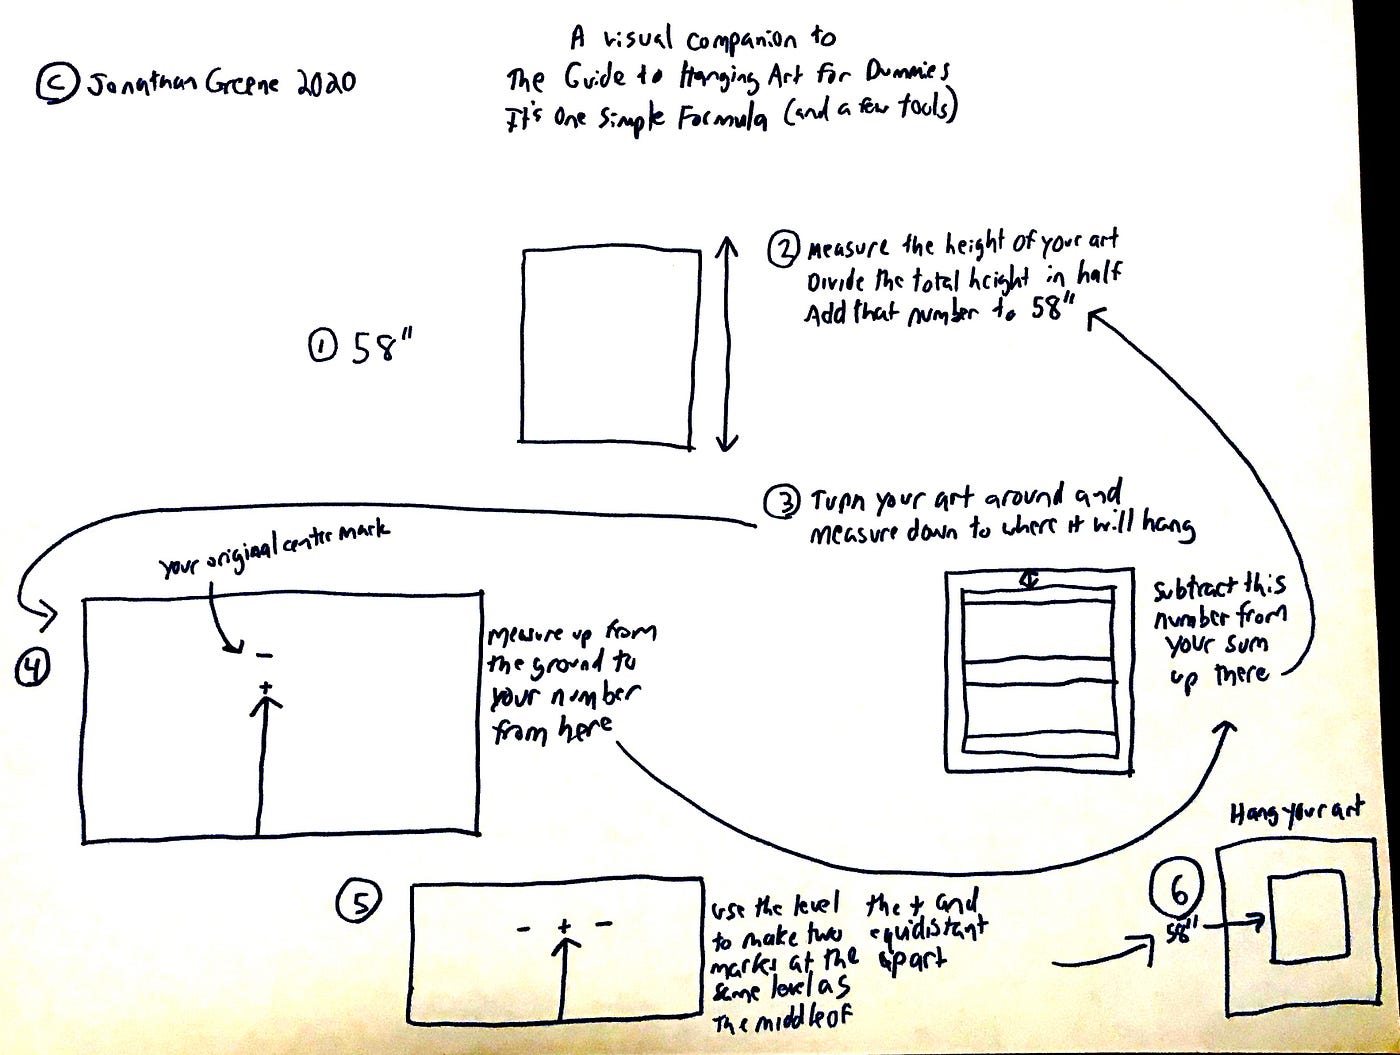 A visual companion to
The Guide to Hanging Art for Dummies
It's One Simple Formula (and a few tools)
© Jonathan Greene 2020
① 58"
② Measure the height of your art
Divide the total height in half
Add that number to 58"
③ Turn your art around and
measure down to where it will hang
subtract this
number from
your sum
up there
④
your original center mark
-
+
measure up from
the ground to
your number
from here
⑤
- + -
use the level the + and
to make two equidistant
marks at the apart
same level as
the middle of
⑥
Hang your art
58"